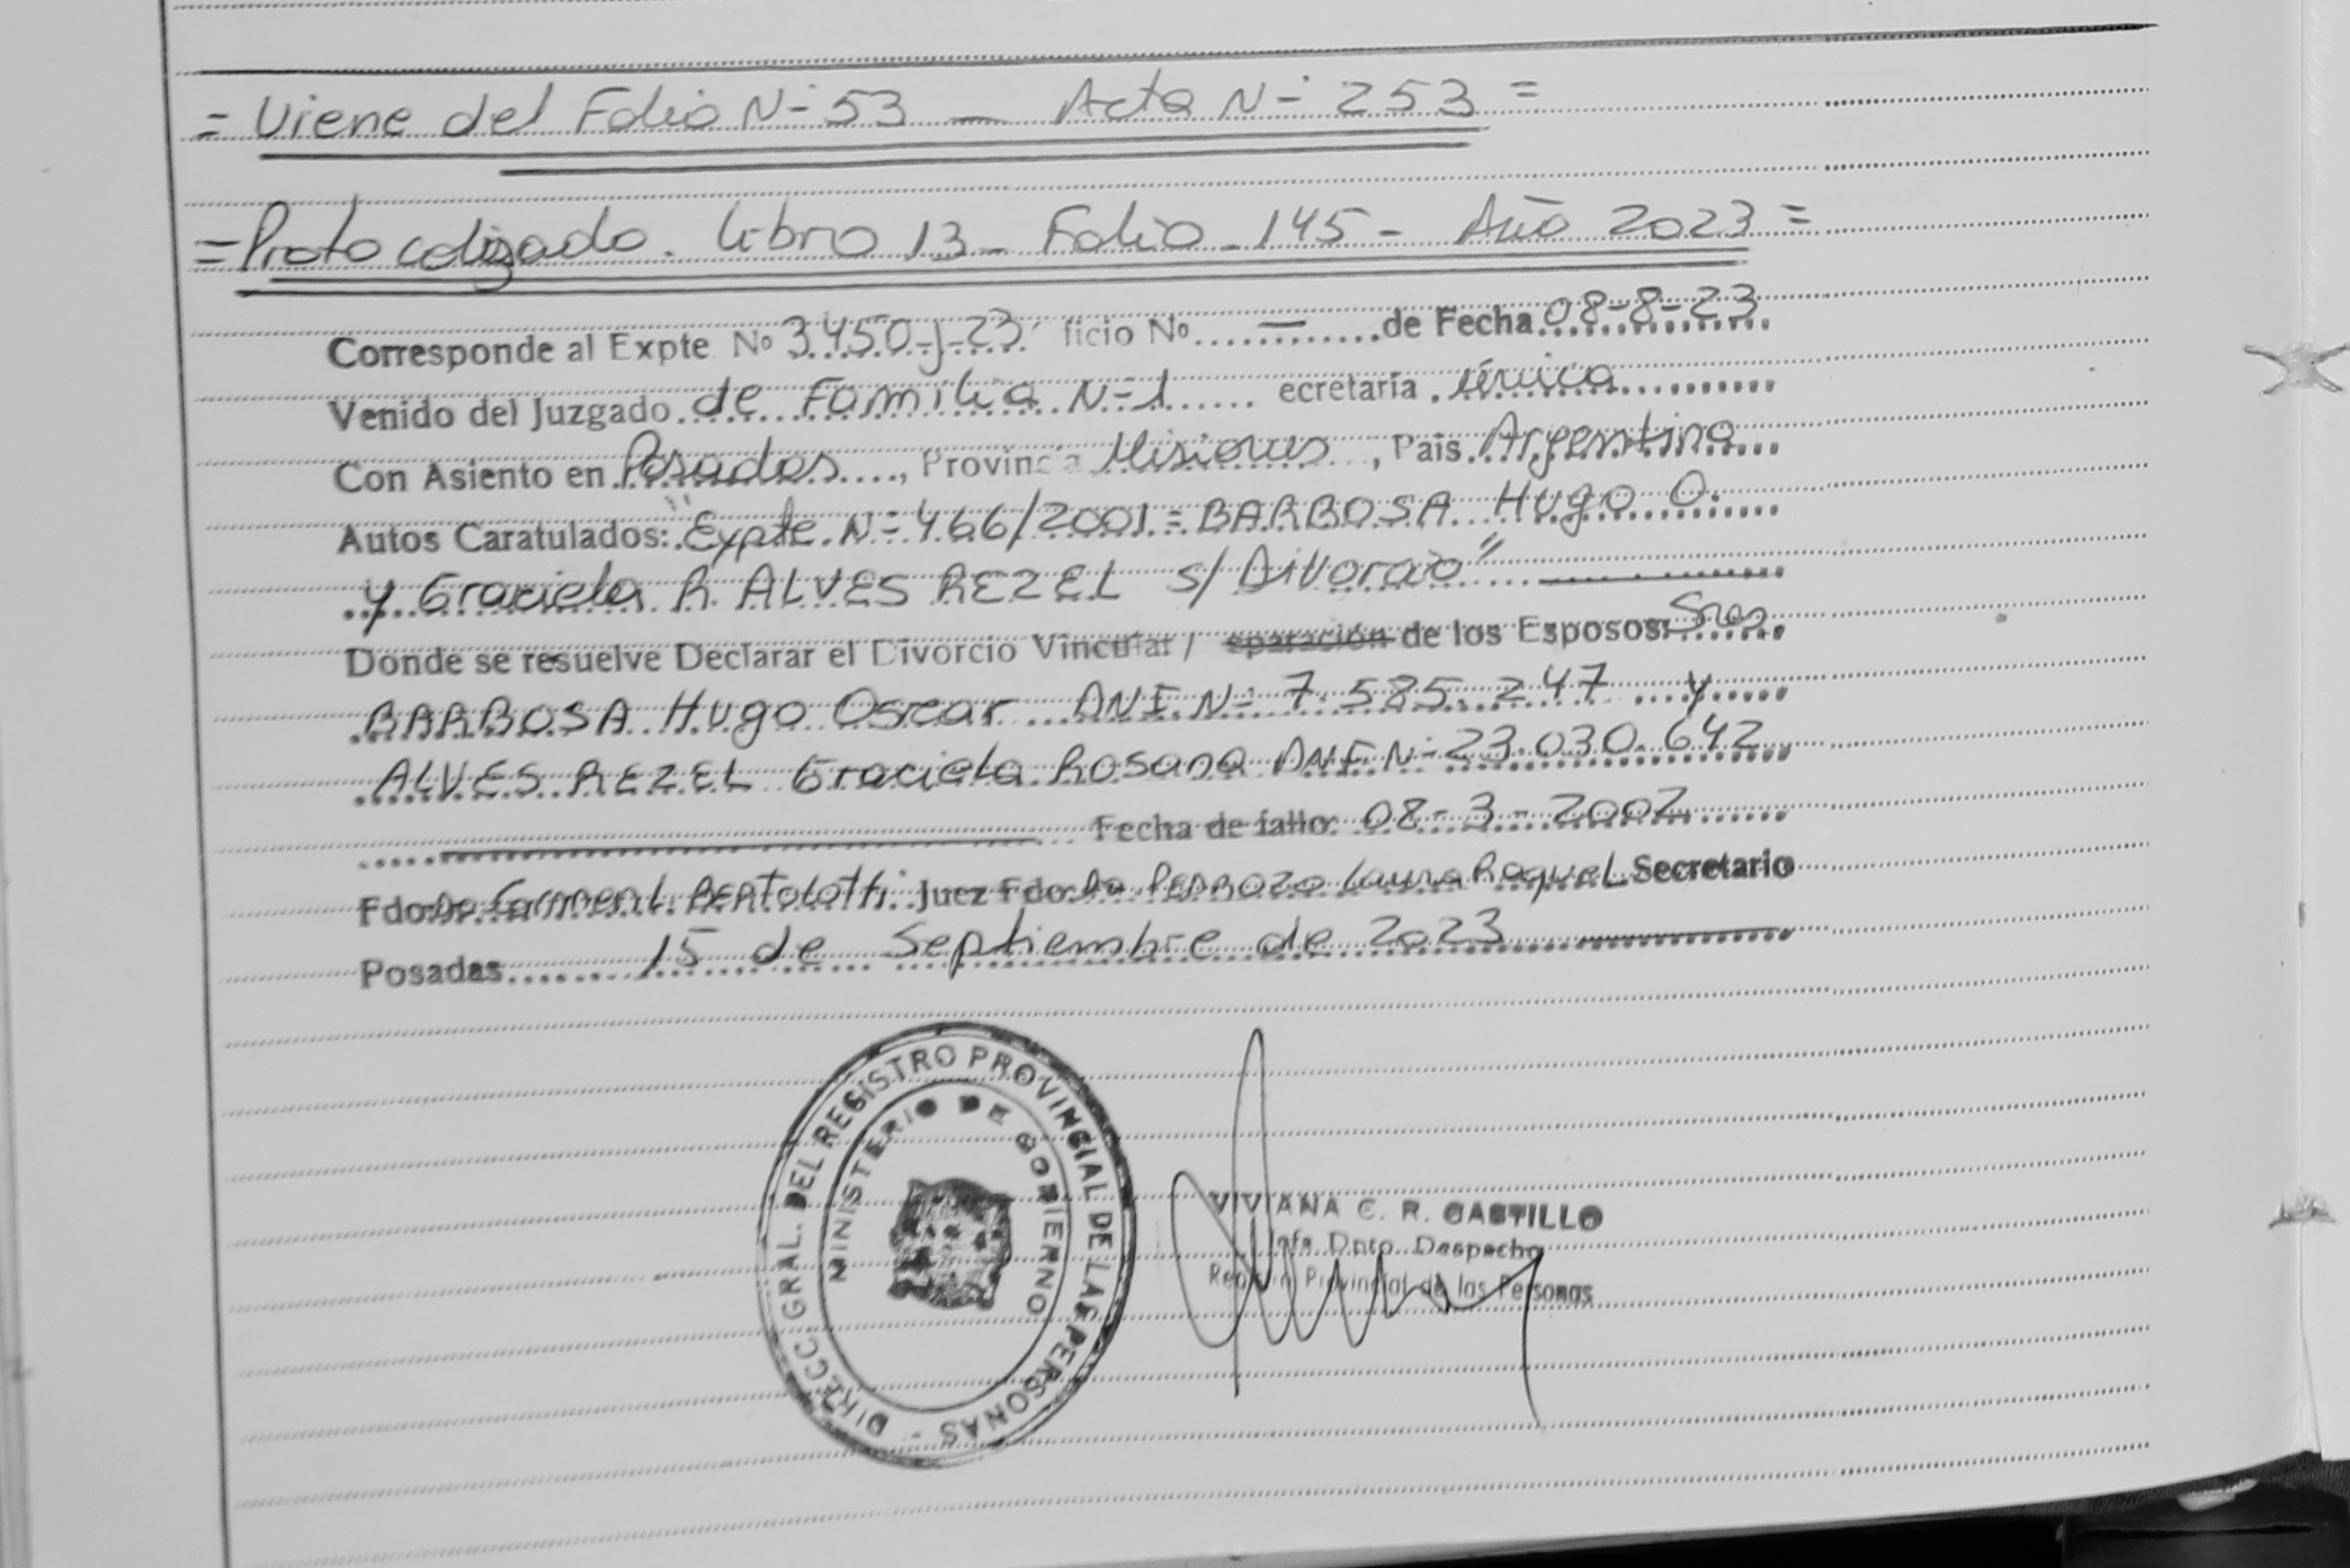 = Viene del Folio Nº 53 — Acta Nº 253 =
= Protocolizado. Libro 13 - Folio - 145 - Año 2023 =
Corresponde al Expte Nº 3450-J-23 ficio No. — de Fecha 08-8-23
Venido del Juzgado de Familia Nº 1 ecretaría única
Con Asiento en Posadas, Provincia Misiones, País Argentina
Autos Caratulados: "Expte. Nº 466/2001 = BARBOSA Hugo O.
y Graciela R. ALVES REZEL s/ Divorcio"
Donde se resuelve Declarar el Divorcio Vincular / eparación de los Esposos: Sres
BARBOSA Hugo Oscar DNI. Nº 7.585.247 y
ALVES REZEL Graciela Rosana DNI Nº 23.030.642
Fecha de fallo: 08-3-2002
Fdo: Dra Carmen L. BERTOLOTTI Juez Fdo: Dra PEDROZO Laura Raquel Secretario
Posadas 15 de Septiembre de 2023
DIRECC GRAL. DEL REGISTRO PROVINCIAL DE LAS PERSONAS -
MINISTERIO DE GOBIERNO
VIVIANA C. R. CASTILLO
Jefa Dpto. Despacho
Registro Provincial de las Personas